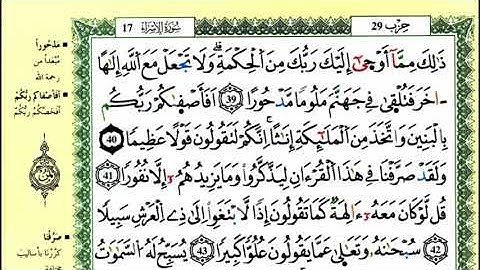 حِزْب 29
سُورَةُ الإِسْرَاءِ 17
ذَٰلِكَ مِمَّا أَوْحَىٰ إِلَيْكَ رَبُّكَ مِنَ الْحِكْمَةِ وَلَا تَجْعَلْ مَعَ اللَّهِ إِلَٰهًا
ـاخَرَ فَتُلْقَىٰ فِي جَهَنَّمَ مَلُومًا مَّدْحُورًا 39 أَفَأَصْفَىٰكُمْ رَبُّكُم
بِالْبَنِينَ وَاتَّخَذَ مِنَ الْمَلَٰٓئِكَةِ إِنَٰثًا إِنَّكُمْ لَتَقُولُونَ قَوْلًا عَظِيمًا 40
وَلَقَدْ صَرَّفْنَا فِي هَٰذَا الْقُرْءَانِ لِيَذَّكَّرُوا وَمَا يَزِيدُهُمْ إِلَّا نُفُورًا 41
قُل لَّوْ كَانَ مَعَهُ ءَالِهَةٌ كَمَا تَقُولُونَ إِذًا لَّابْتَغَوْا إِلَىٰ ذِي الْعَرْشِ سَبِيلًا
42 سُبْحَٰنَهُ وَتَعَٰلَىٰ عَمَّا يَقُولُونَ عُلُوًّا كَبِيرًا 43 يُسَبِّحُ لَهُ السَّمَٰوَٰتُ
مَدْحُوراً
مُبْعَداً من
رحمة الله
أفأصفاكم ربكم
أفخصّكم ربكم
صَرَّفْنَا
كرّرنا بأساليب
مختلفة